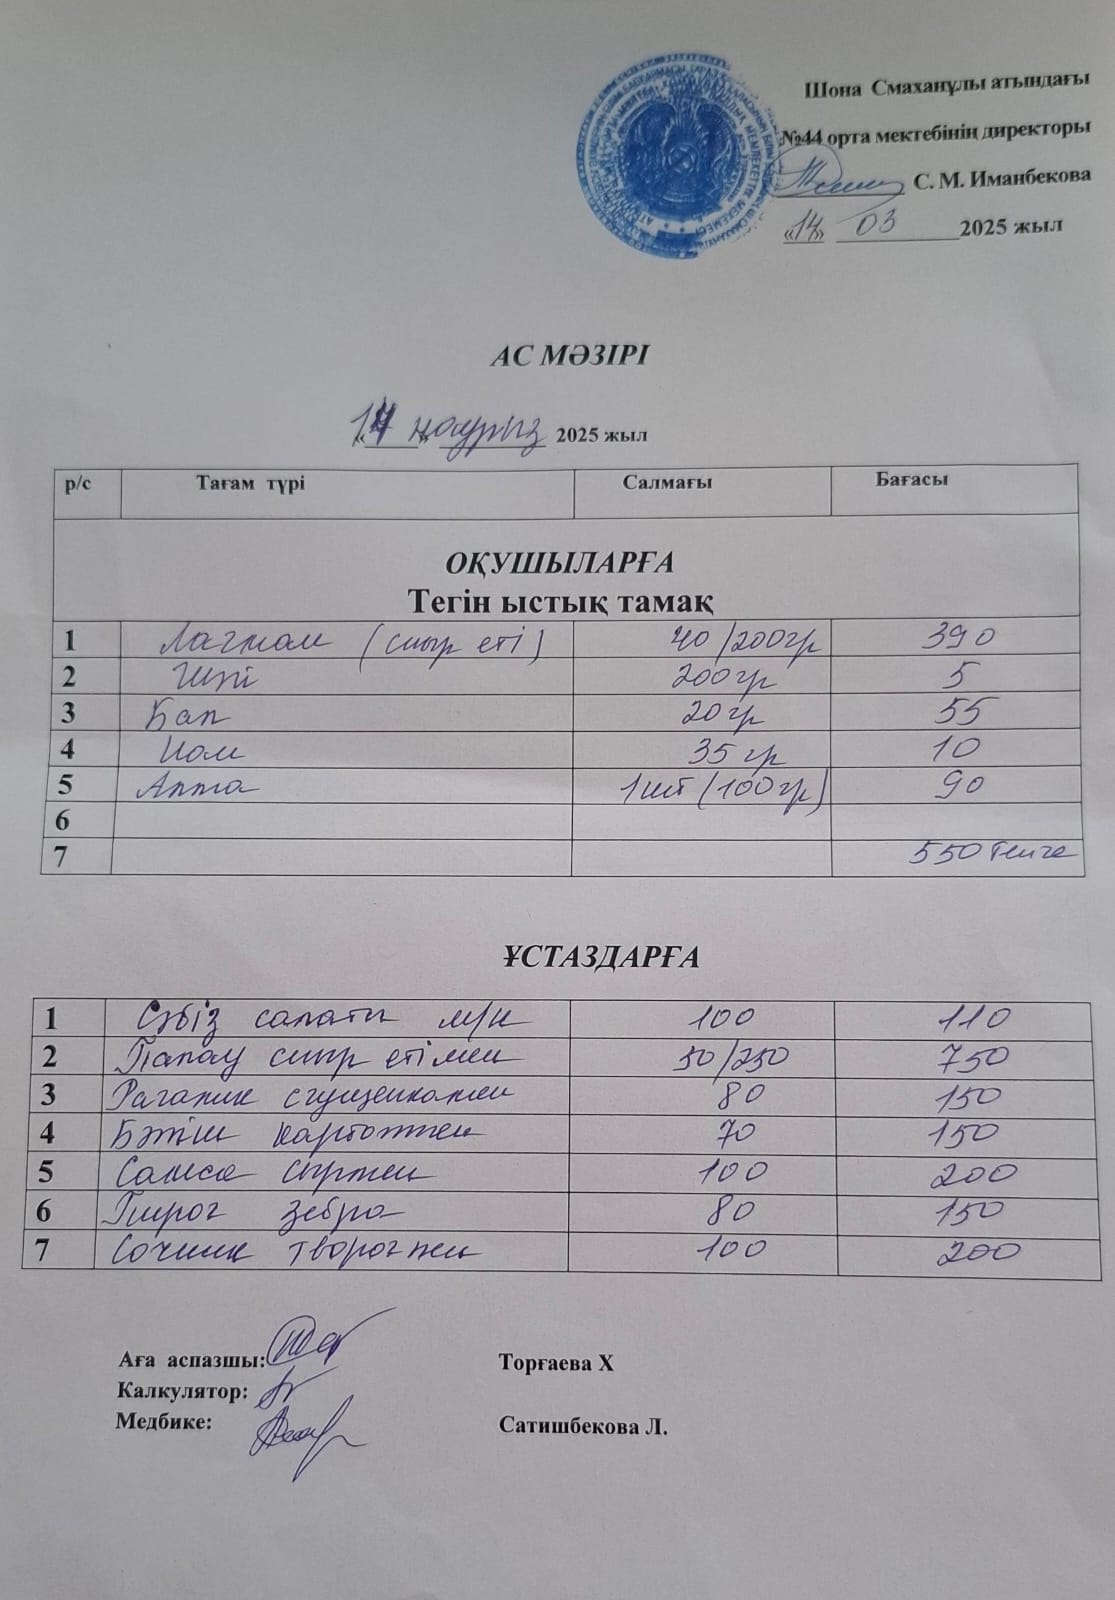 Шона Смаханұлы атындағы
№44 орта мектебінің директоры
С. М. Иманбекова
«14» 03 2025 жыл
АС МӘЗІРІ
«14» наурыз 2025 жыл
р/с Тағам түрі Салмағы Бағасы
ОҚУШЫЛАРҒА
Тегін ыстық тамақ
1 Лагман (сиыр еті) 40/200гр 390
2 Шәй 200гр 5
3 Бал 20гр 55
4 Нан 35гр 10
5 Алма 1шт (100гр) 90
6
7 550 теңге
ҰСТАЗДАРҒА
1 Сәбіз салаты м/н 100 110
2 Палау сиыр етімен 50/250 750
3 Рагалик сгущенкамен 80 150
4 Бәтіш картоппен 70 150
5 Самса сырмен 100 200
6 Пирог зебра 80 150
7 Сочник творогпен 100 200
Аға аспазшы: Торғаева Х
Калкулятор:
Медбике: Сатишбекова Л.